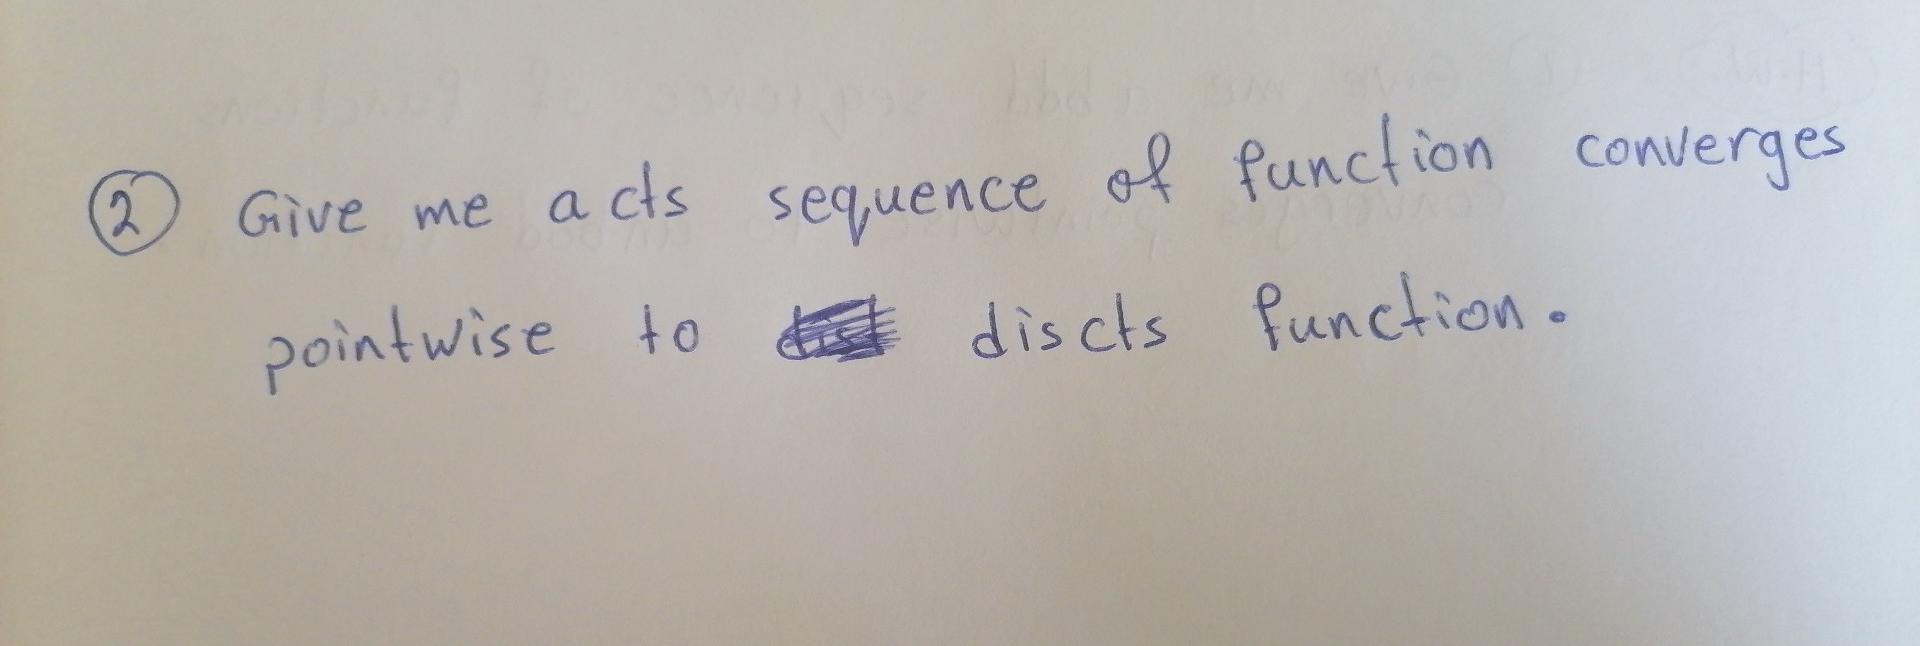 ② Give me a cts sequence of function converges
pointwise to discts function.